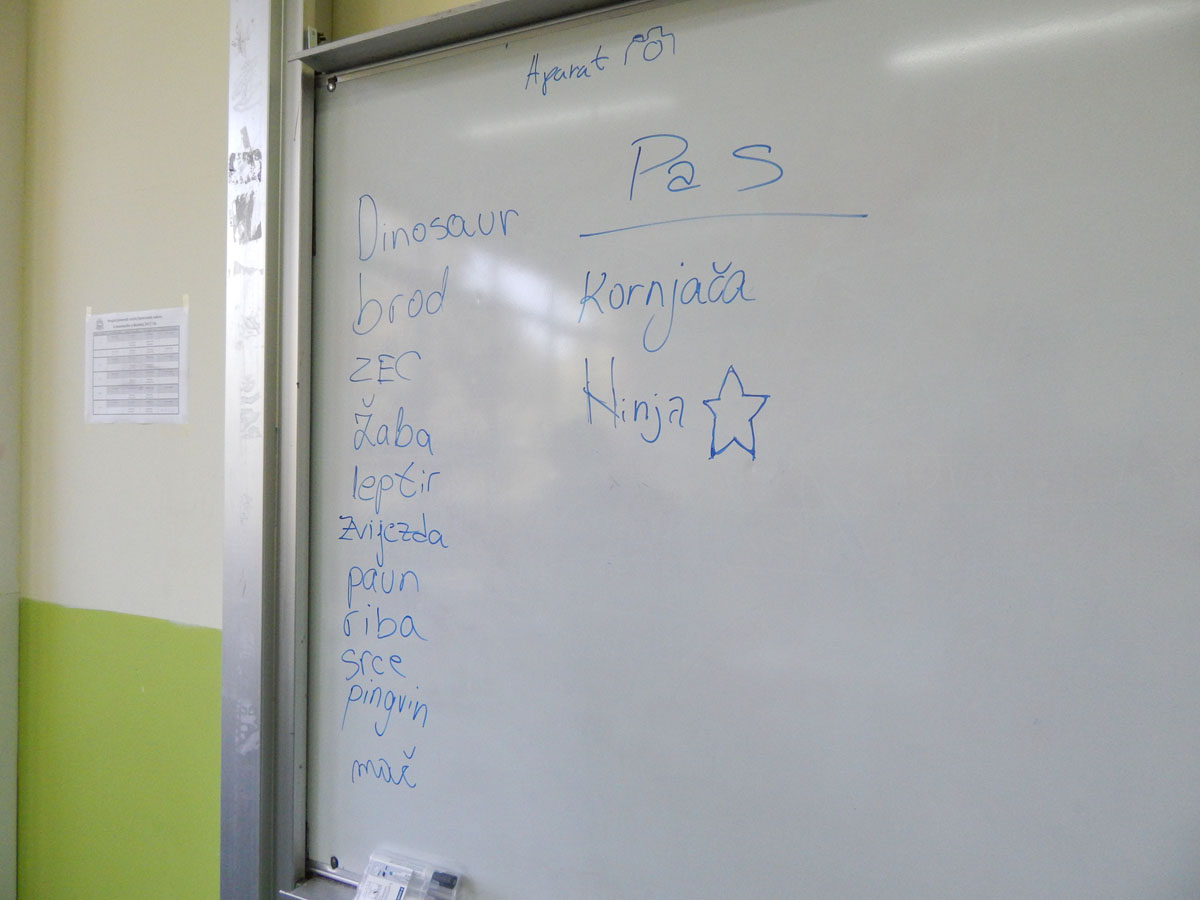 Aparat
Pas
Dinosaur
brod
ZEC
Žaba
leptir
zvijezda
paun
riba
srce
pingvin
mač
Kornjača
Ninja